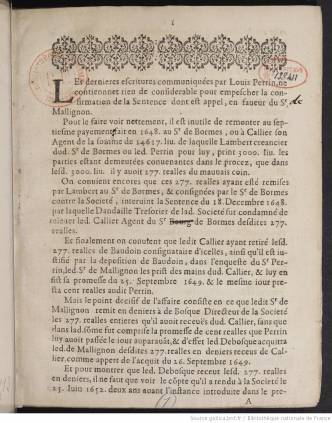 1
LEs dernieres escritures communiquées par Louis Perrin, ne
contiennent rien de considerable pour empescher la con-
firmation de la Sentence dont est appel, en faueur du Sr. de
Mallignon.
Pour le faire voir nettement, il est inutile de remonter au sep-
tiesme payement fait en 1648. au Sr. de Bormes, ou à Callier son
Agent de la somme de 14617. liu. de laquelle Lambert creancier
dud. Sr. de Bormes ou led. Perrin pour luy, print 3000. liu. les
parties estant demeurées conuenantes dans le procez, que dans
lesd. 3000. liu. il y auoit 277. realles du mauuais coin.
On conuient encores que ces 277. realles ayant esté remises
par Lambert au Sr. de Bormes, & consignées par le Sr. de Bormes
contre la Societé, interuint la Sentence du 18. Decembre 1648.
par laquelle Dandaille Tresorier de lad. Societé fut condamné de
releuer led. Callier Agent du Sr. de Bormes desdites 277.
realles.
Et finalement on conuient que ledit Callier ayant retiré lesd.
277. realles de Baudoin consignataire d'icelles, ainsi qu'il est iu-
stifié par la deposition de Baudoin, dans l'enqueste du Sr. Per-
rin, led. Sr. de Mallignon les prist des mains dud. Callier, & luy en
fist sa promesse du 25. Septembre 1649. & le mesme iour pres-
ta cent realles audit Perrin.
Mais le point decisif de l'affaire consiste en ce que ledit Sr de
Mallignon remit en deniers à de Bosque Directeur de la Societé
les 277. realles entieres qu'il auoit receuës dud. Callier, sans que
dans lad. sôme fut comprise la promesse de cent realles que Perrin
luy auoit passée le iour auparauāt, & d'effet led. Debosque acquitta
led. de Mallignon desdites 277. realles en deniers receus de Cal-
lier, comme appert de l'acquit du 26. Septembre 1649.
Et pour montrer que led. Debosque receut lesd. 277. realles
en deniers, il ne faut que voir le côpte qu'il a rendu à la Societé le
25. Iuin 1652. deux ans auant l'instance introduite dans le pre-
A
(1)
Source gallica.bnf.fr / Bibliothèque nationale de France